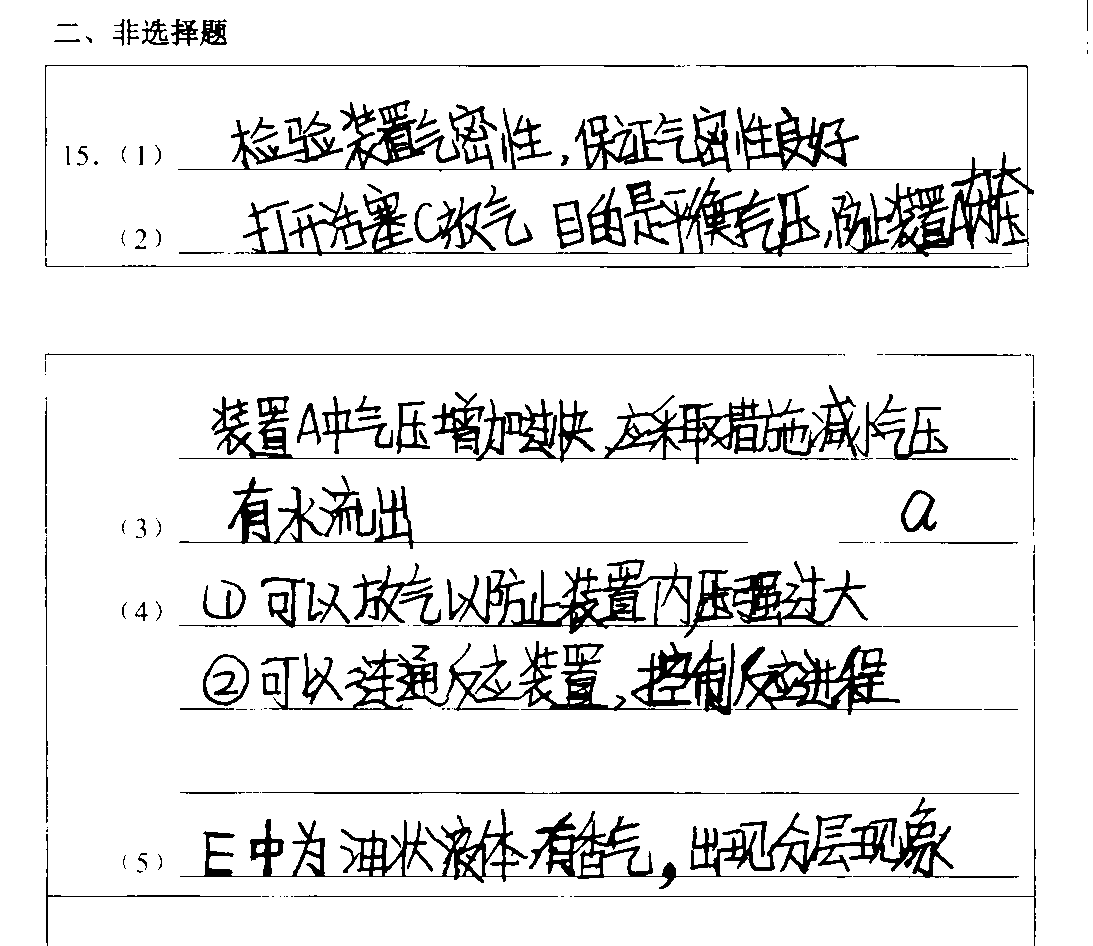 二、非选择题
15.（1） 检验装置气密性,保证气密性良好
（2） 打开活塞C放气 目的是平衡气压,防止装置A中气压过大
装置A中气压增加过快,应采取措施减小气压
（3） 有水流出 a
（4） ①可以放气以防止装置内压强过大
②可以连通反应装置,控制反应进程
（5） E中为油状液体有香气,出现分层现象